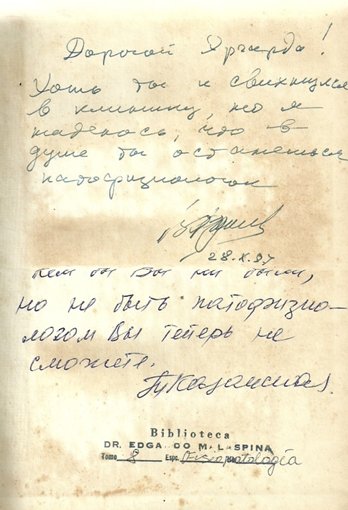 Дорогой Эдгардо!
Хоть ты и свихнулся
в клинику, но я
надеюсь, что в
душе ты останешься
патофизиологом
28.X.87
Кем бы Вы ни были,
но не быть патофизио-
логом Вы теперь не
сможете.
ТКазанская.
Biblioteca
DR. EDGARDO M^LASPINA
Tomo 8 Espc. Fisiopatología